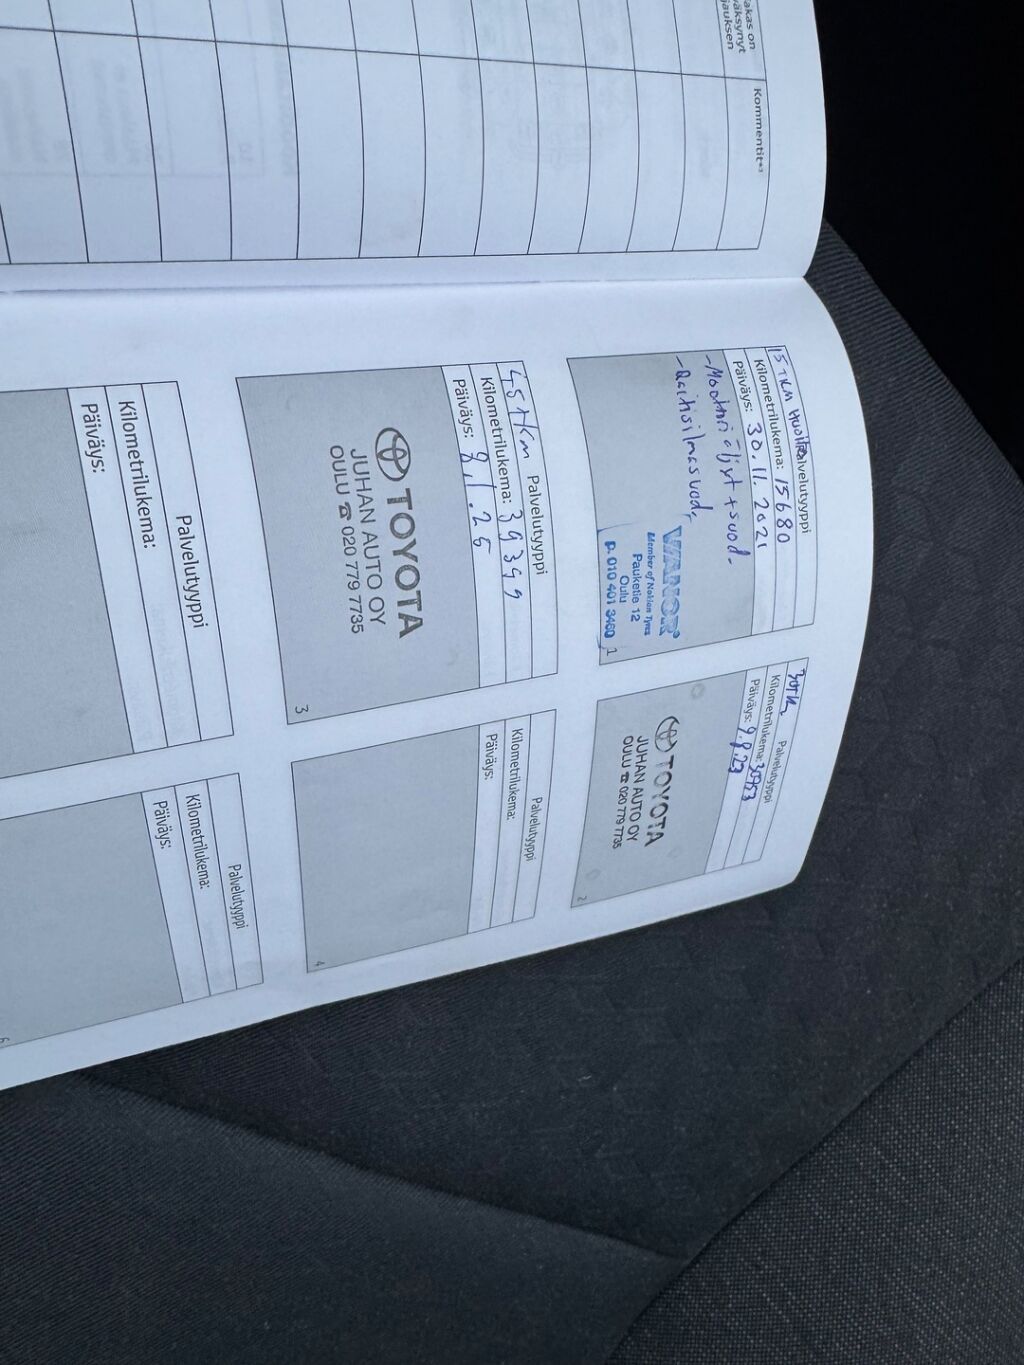 akas on
väksynyt
jauksen
Kommentit*³
15 TKM Huolto Palvelutyyppi
Kilometrilukema: 15680
Päiväys: 30.11.2021
-Moottoriöljyt + suod.
-Raitisilmasuod.
VIANOR
Member of Nokian Tyres
Pauketie 12
Oulu
p. 010 401 3460
1
30tkm Palvelutyyppi
Kilometrilukema: 30953
Päiväys: 9.8.23
TOYOTA
JUHAN AUTO OY
OULU ☎ 020 779 7735
2
45tkm Palvelutyyppi
Kilometrilukema: 39399
Päiväys: 8.1.25
TOYOTA
JUHAN AUTO OY
OULU ☎ 020 779 7735
3
Palvelutyyppi
Kilometrilukema:
Päiväys:
4
Palvelutyyppi
Kilometrilukema:
Päiväys:
Palvelutyyppi
Kilometrilukema:
Päiväys:
6